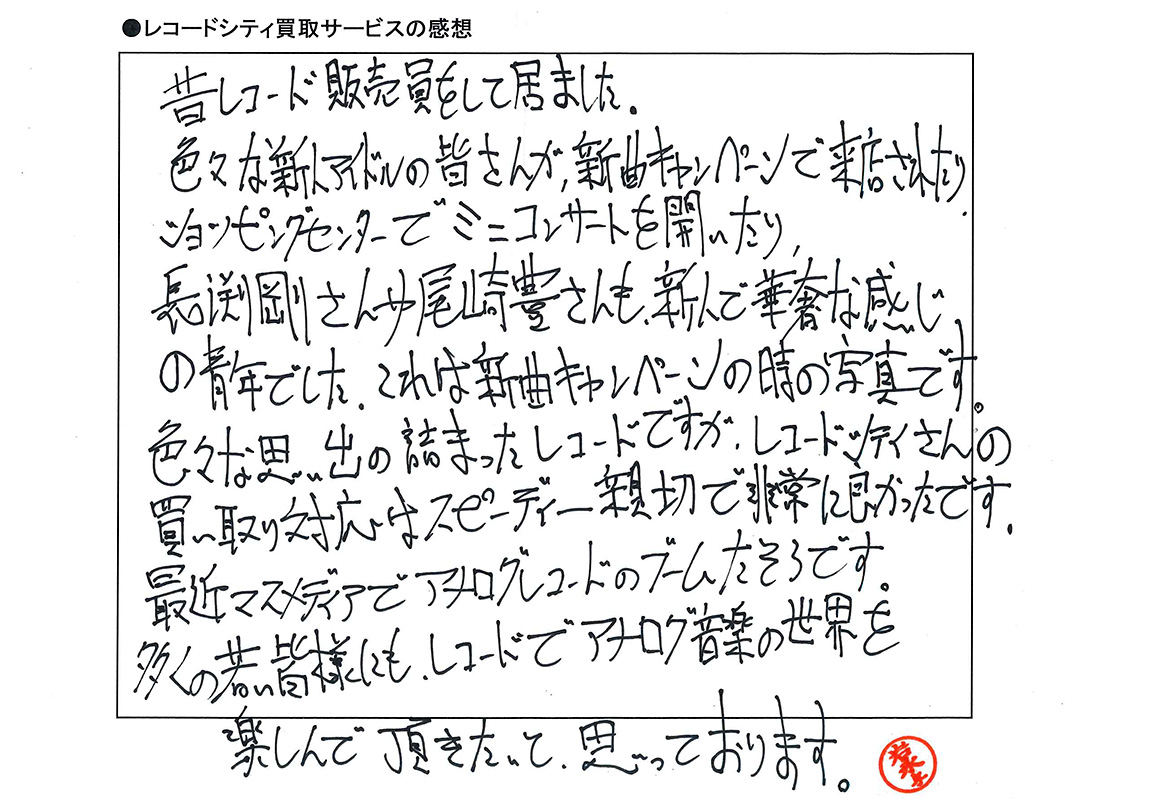 ●レコードシティ買取サービスの感想
昔レコード販売員をして居ました。
色々な新人アイドルの皆さんが、新曲キャンペーンで来店されたり、
ショッピングセンターでミニコンサートを開いたり、
長渕剛さんや尾崎豊さんも、新人で華奢な感じ
の青年でした。これは新曲キャンペーンの時の写真です。
色々な思い出の詰まったレコードですが、レコードシティさんの
買い取り対応はスピーディー親切で非常に良かったです。
最近マスメディアでアナログレコードのブームだそうです。
多くの若い皆様にも、レコードでアナログ音楽の世界を
楽しんで頂きたいと、思っております。